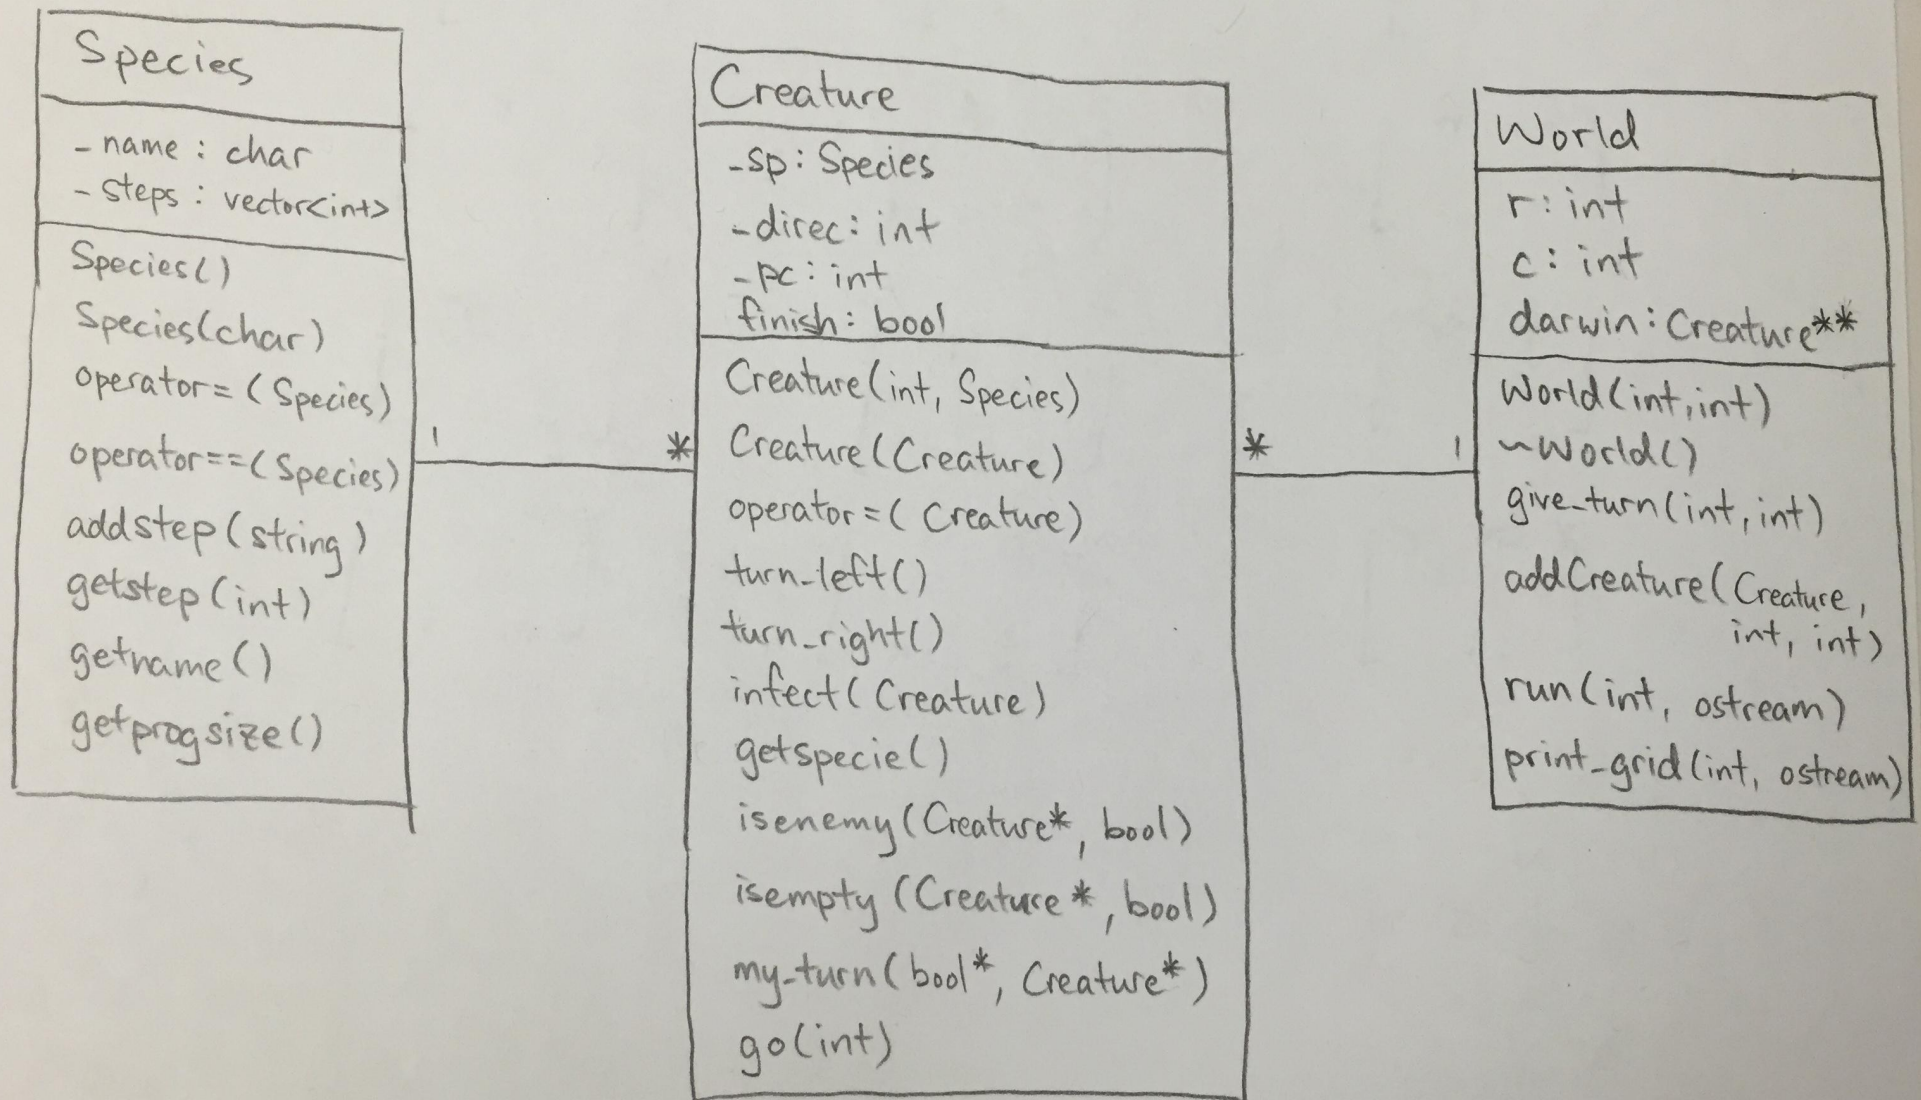 Species
- name : char
- steps : vector<int>
Species()
Species(char)
operator= (Species)
operator==(Species)
addstep(string)
getstep(int)
getname()
getprogsize()
1
*
Creature
-sp: Species
-direc: int
-pc: int
finish: bool
Creature(int, Species)
Creature(Creature)
operator=( Creature)
turn_left()
turn_right()
infect( Creature)
getspecie()
isenemy(Creature*, bool)
isempty (Creature*, bool)
my_turn( bool*, Creature*)
go(int)
*
1
World
r: int
c: int
darwin: Creature**
World(int,int)
~World()
give_turn(int, int)
addCreature(Creature,
int, int)
run(int, ostream)
print_grid(int, ostream)